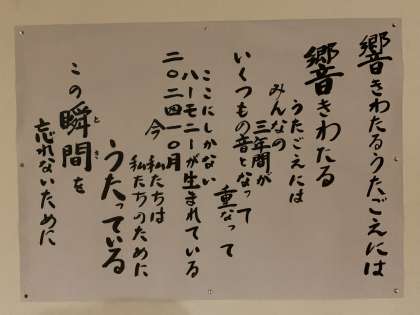 響きわたるうたごえには
響きわたる
うたごえには
みんなの
三年間が
いくつもの音となって
重なって
ここにしかない
ハーモニーが生まれている
二〇二四一〇月
今 私たちは
私たちのために
うたっている
この瞬間を
とき
忘れないために